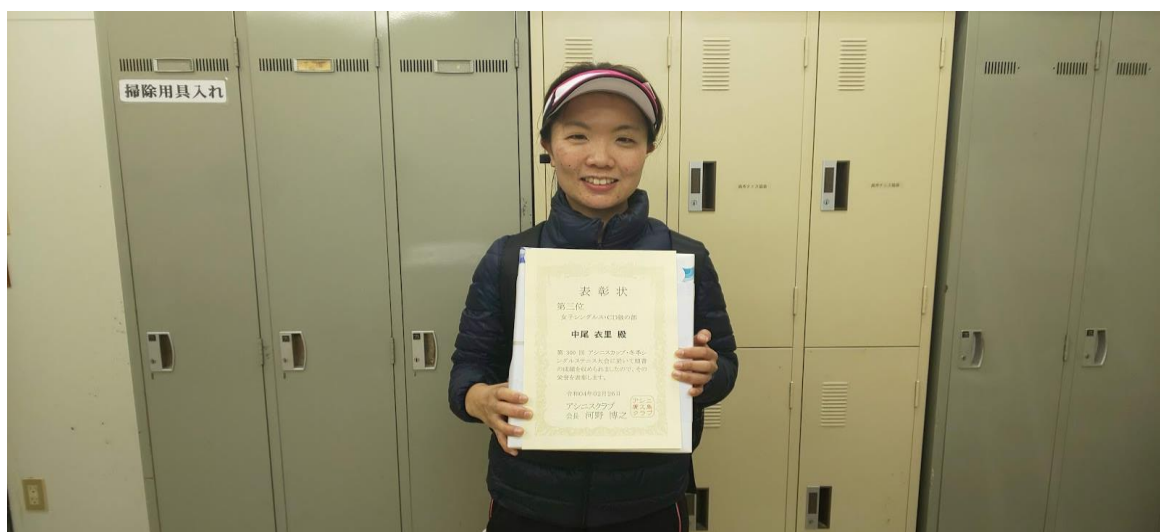 掃除用具入れ
表彰状
第三位
女子シングルス・CD級の部
中尾 衣里 殿
第 300 回 アシニスカップ・冬季シ
ングルステニス大会に於いて頭書
の成績を収められましたので、その
栄誉を表彰します。
令和04年02月26日
アシニスクラブ
会長 河野 博之